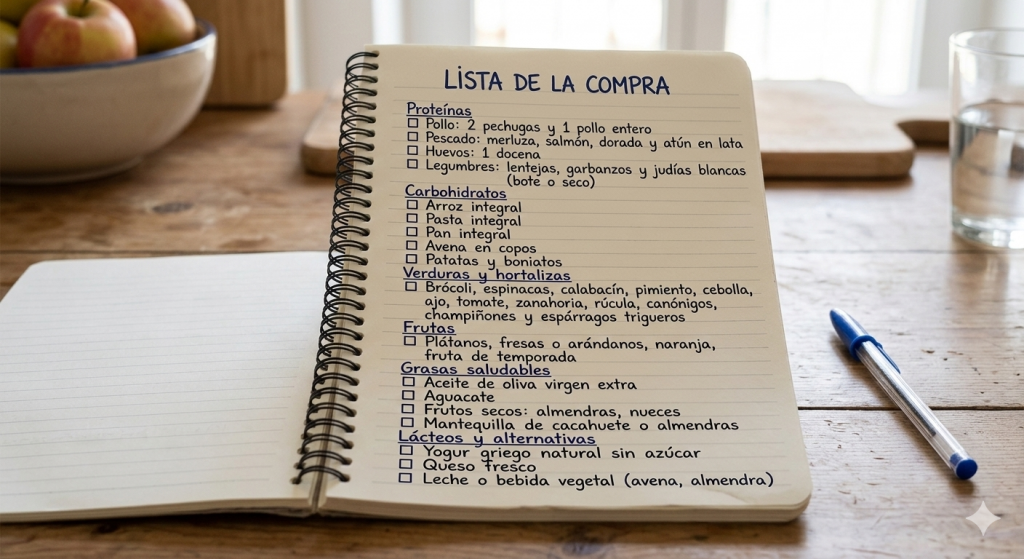 LISTA DE LA COMPRA
Proteínas
☐ Pollo: 2 pechugas y 1 pollo entero
☐ Pescado: merluza, salmón, dorada y atún en lata
☐ Huevos: 1 docena
☐ Legumbres: lentejas, garbanzos y judías blancas
(bote o seco)
Carbohidratos
☐ Arroz integral
☐ Pasta integral
☐ Pan integral
☐ Avena en copos
☐ Patatas y boniatos
Verduras y hortalizas
☐ Brócoli, espinacas, calabacín, pimiento, cebolla,
ajo, tomate, zanahoria, rúcula, canónigos,
champiñones y espárragos trigueros
Frutas
☐ Plátanos, fresas o arándanos, naranja,
fruta de temporada
Grasas saludables
☐ Aceite de oliva virgen extra
☐ Aguacate
☐ Frutos secos: almendras, nueces
☐ Mantequilla de cacahuete o almendras
Lácteos y alternativas
☐ Yogur griego natural sin azúcar
☐ Queso fresco
☐ Leche o bebida vegetal (avena, almendra)